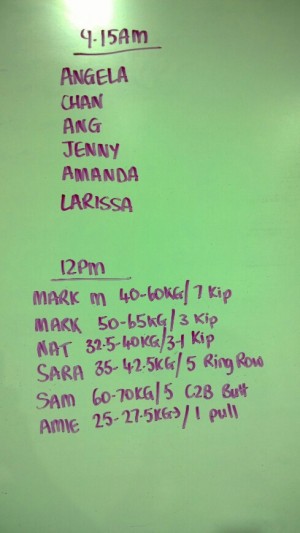 9.15AM
ANGELA
CHAN
ANG
JENNY
AMANDA
LARISSA
12PM
MARK M 40-60KG/ 7 Kip
MARK 50-65KG/ 3 Kip
NAT 32.5-40KG/3-1 Kip
SARA 35-42.5KG/ 5 Ring Row
SAM 60-70KG/ 5 C2B Butt
AMIE 25-27.5KG/ 1 pull